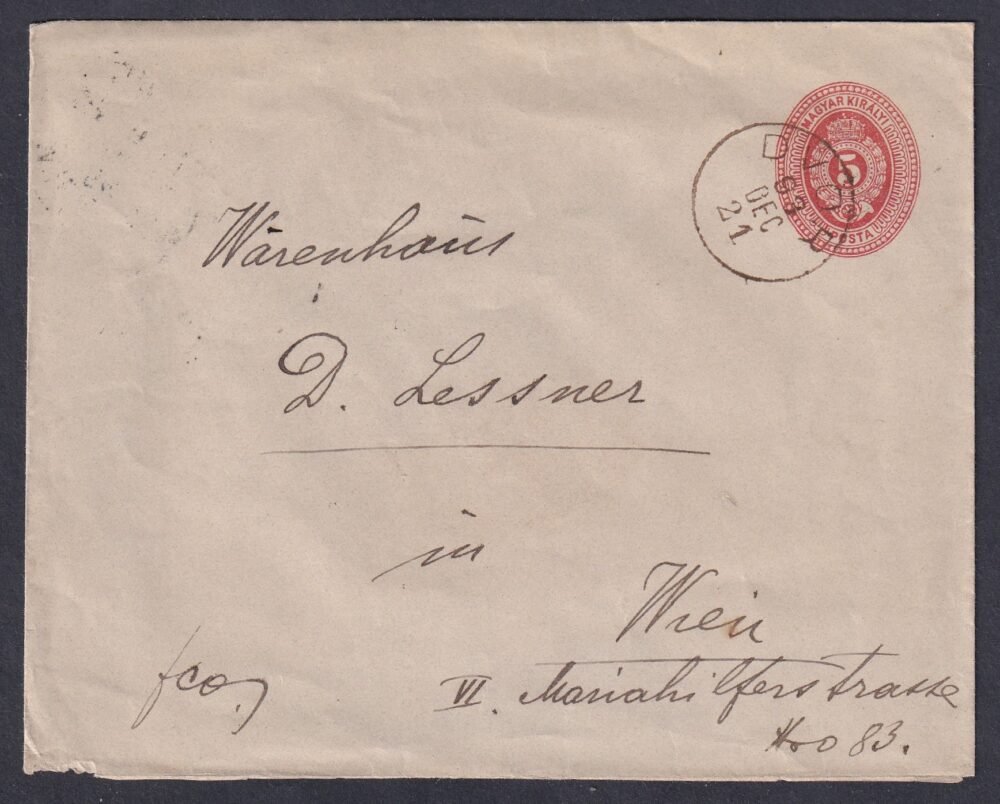 MAGYAR KIRÁLYI
5
POSTA
93
DEC
21
Warenhaus
D. Lessner
in
Wien
fco.
VI. Mariahilferstrasse
Nro 83.